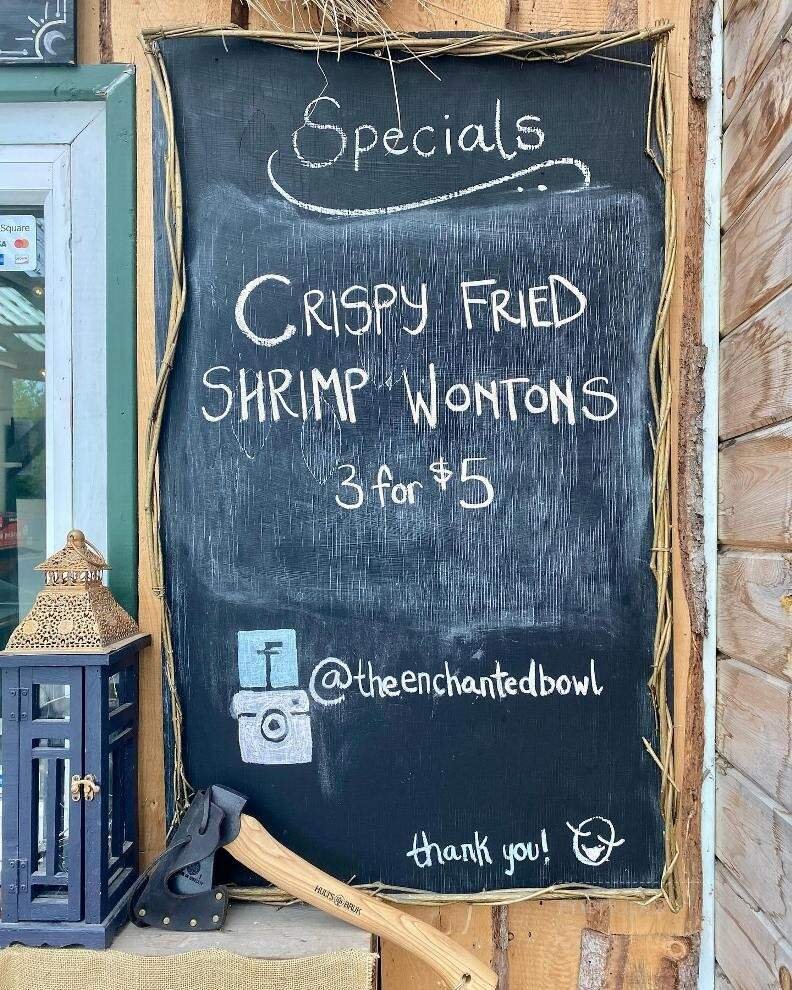 Specials
Square
VISA
CRISPY FRIED
SHRIMP WONTONS
3 for $5
f @theenchantedbowl
thank you!
HULTS BRUK